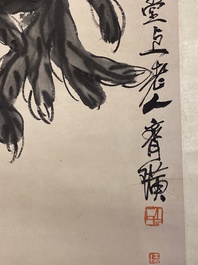 堂上老人齊璜